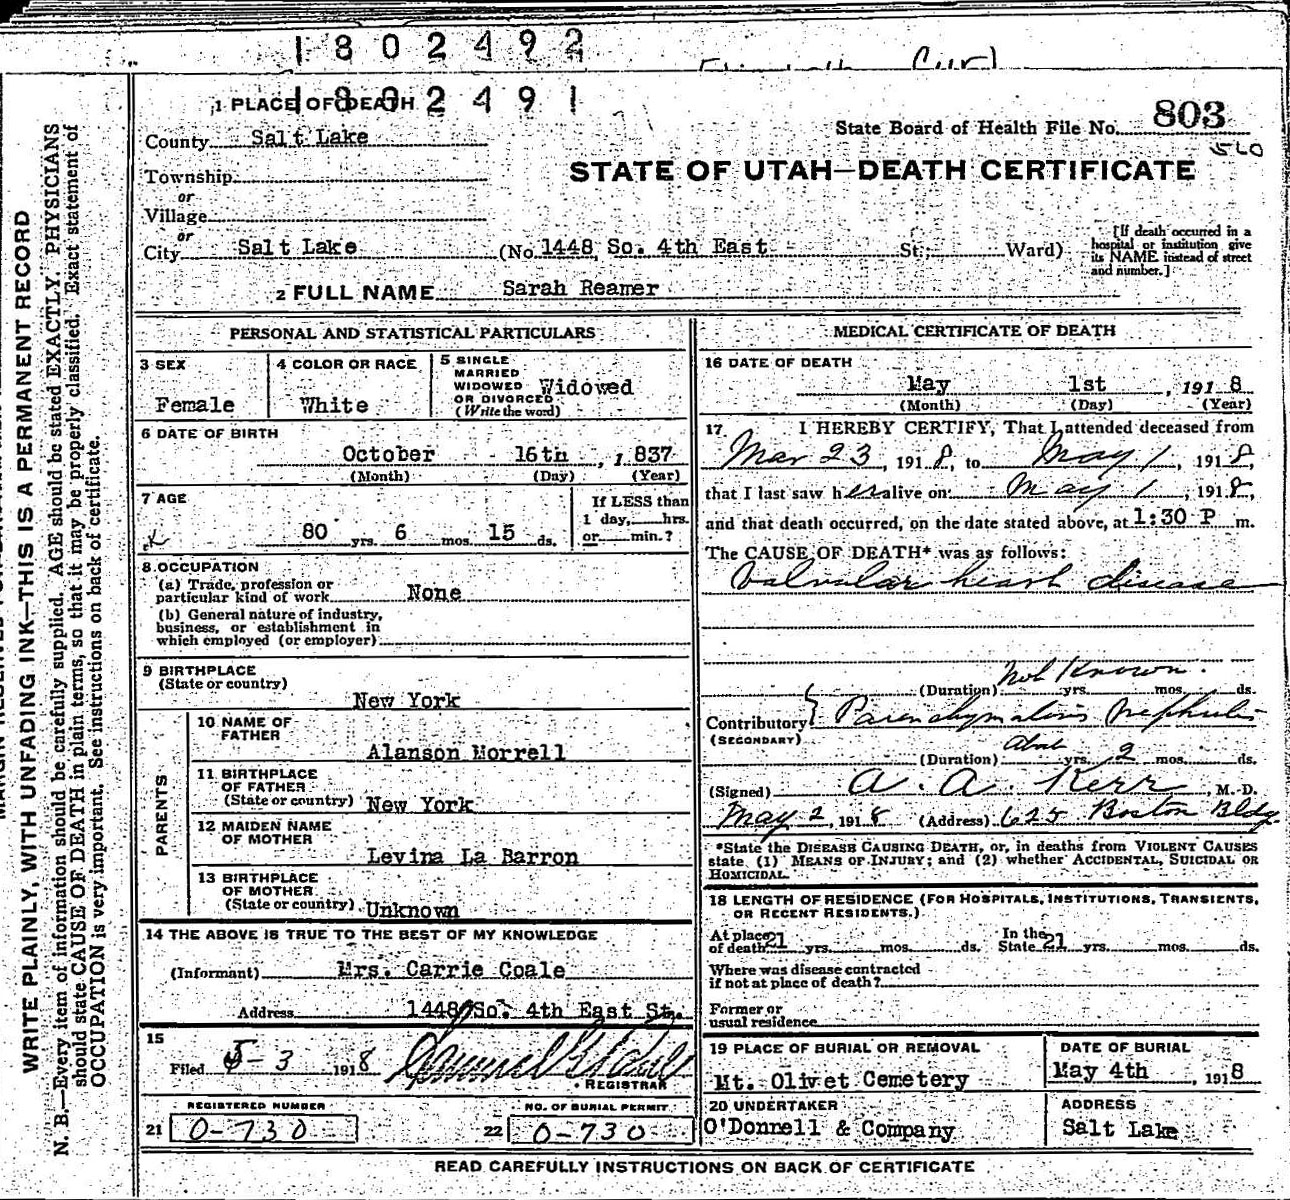 1802492
1802491
1 PLACE OF DEATH
State Board of Health File No. 803
560
County Salt Lake
STATE OF UTAH—DEATH CERTIFICATE
Township
or
Village
or
City Salt Lake (No. 1448 So. 4th East St.; Ward)
[If death occurred in a hospital or institution give its NAME instead of street and number.]
2 FULL NAME Sarah Reamer
PERSONAL AND STATISTICAL PARTICULARS
3 SEX
Female
4 COLOR OR RACE
White
5 SINGLE
MARRIED
WIDOWED
OR DIVORCED
(Write the word)
Widowed
6 DATE OF BIRTH
October 16th, 1837
(Month) (Day) (Year)
7 AGE
80 yrs. 6 mos. 15 ds.
If LESS than
1 day, hrs.
or min.?
8 OCCUPATION
(a) Trade, profession or
particular kind of work None
(b) General nature of industry,
business, or establishment in
which employed (or employer)
9 BIRTHPLACE
(State or country)
New York
PARENTS
10 NAME OF
FATHER
Alanson Morrell
11 BIRTHPLACE
OF FATHER
(State or country) New York
12 MAIDEN NAME
OF MOTHER
Levina La Barron
13 BIRTHPLACE
OF MOTHER
(State or country) Unknown
14 THE ABOVE IS TRUE TO THE BEST OF MY KNOWLEDGE
(Informant) Mrs. Carrie Coale
Address 1448 So. 4th East St.
15
Filed 5-3 1918
REGISTRAR
REGISTERED NUMBER
21 0-730
NO. OF BURIAL PERMIT
22 0-730
MEDICAL CERTIFICATE OF DEATH
16 DATE OF DEATH
May 1st, 1918
(Month) (Day) (Year)
17 I HEREBY CERTIFY, That I attended deceased from
Mar 23, 1918, to May 1, 1918,
that I last saw her alive on May 1, 1918,
and that death occurred, on the date stated above, at 1:30 P m.
The CAUSE OF DEATH* was as follows:
Valvular heart disease
Not Known.
(Duration) yrs. mos. ds.
Contributory Parenchymatous Nephritis
(SECONDARY)
(Duration) yrs. 2 mos. ds.
(Signed) A. A. Kerr, M. D.
May 2, 1918 (Address) 625 Boston Bldg.
*State the DISEASE CAUSING DEATH, or, in deaths from VIOLENT CAUSES
state (1) MEANS OF INJURY; and (2) whether ACCIDENTAL, SUICIDAL OR
HOMICIDAL.
18 LENGTH OF RESIDENCE (FOR HOSPITALS, INSTITUTIONS, TRANSIENTS,
OR RECENT RESIDENTS.)
At place
of death 21 yrs. mos. ds.
In the
State 21 yrs. mos. ds.
Where was disease contracted
if not at place of death?
Former or
usual residence
19 PLACE OF BURIAL OR REMOVAL
Mt. Olivet Cemetery
DATE OF BURIAL
May 4th, 1918
20 UNDERTAKER
O'Donnell & Company
ADDRESS
Salt Lake
READ CAREFULLY INSTRUCTIONS ON BACK OF CERTIFICATE
WRITE PLAINLY, WITH UNFADING INK—THIS IS A PERMANENT RECORD
N. B.—Every item of information should be carefully supplied. AGE should be stated EXACTLY. PHYSICIANS
should state CAUSE OF DEATH in plain terms, so that it may be properly classified. Exact statement of
OCCUPATION is very important. See instructions on back of certificate.